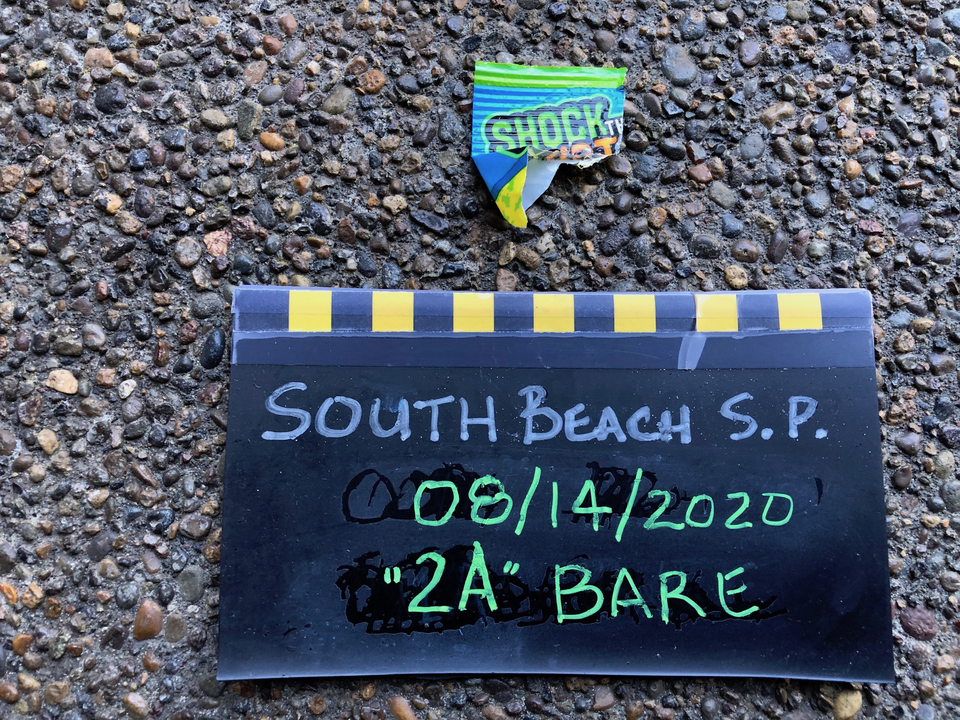 SHOCK
SOUTH BEACH S.P.
08/14/2020
"2A" BARE